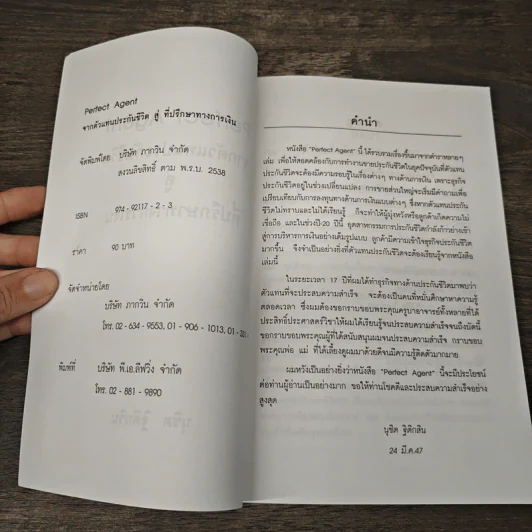 Perfect Agent
จากตัวแทนประกันชีวิต สู่ ที่ปรึกษาทางการเงิน
จัดพิมพ์โดย บริษัท ภากวิน จำกัด
สงวนลิขสิทธิ์ ตาม พ.ร.บ. 2538
ISBN 974-92117-2-3
ราคา 90 บาท
จัดจำหน่ายโดย
บริษัท ภากวิน จำกัด
โทร. 02-634-9553, 01-906-1013, 01-
พิมพ์ที่ บริษัท พี.เอ.ลีฟวิ่ง จำกัด
โทร. 02-881-9890
คำนำ
หนังสือ "Perfect Agent" นี้ ได้รวบรวมเรื่องขึ้นมาจากตำราหลายๆ
เล่ม เพื่อให้สอดคล้องกับการทำงานขายประกันชีวิตในยุคปัจจุบันที่ตัวแทน
ประกันชีวิตจะต้องมีความรอบรู้ในเรื่องต่างๆ ทางด้านการเงิน เพราะธุรกิจ
ประกันชีวิตอยู่ในช่วงเปลี่ยนแปลง การขายส่วนใหญ่จะเริ่มมีคำถามเพื่อ
เปรียบเทียบกับการลงทุนทางด้านการเงินแบบต่างๆ ซึ่งหากตัวแทนประกัน
ชีวิตไม่ทราบและไม่ได้เรียนรู้ ก็จะทำให้ผู้มุ่งหวังหรือลูกค้าเกิดความไม่
เชื่อถือ และในช่วงปี-20 ปีนี้ อุตสาหกรรมการประกันชีวิตกำลังก้าวย่างเข้า
สู่การบริหารการเงินอย่างเต็มรูปแบบ ลูกค้ามีความเข้าใจธุรกิจประกันชีวิต
มากขึ้น จึงจำเป็นอย่างยิ่งที่ตัวแทนประกันชีวิตจะต้องเรียนรู้จากหนังสือ
เล่มนี้
ในระยะเวลา 17 ปีที่ผมได้ทำธุรกิจทางด้านประกันชีวิตมาพบว่า
ตัวแทนที่จะประสบความสำเร็จ จะต้องเป็นคนที่หมั่นศึกษาหาความรู้
ตลอดเวลา ซึ่งผมต้องขอกราบขอบพระคุณครูบาอาจารย์ทั้งหลายที่ได้
ประสิทธิ์ประศาสตร์วิชาให้ผมได้เรียนรู้จนประสบความสำเร็จจนถึงบัดนี้
ขอกราบขอบพระคุณผู้ที่ได้สนับสนุนผมจนประสบความสำเร็จ กราบขอบ
พระคุณพ่อ แม่ ที่ได้เลี้ยงดูผมมาด้วยดีจนมีความรู้ติดตัวมากมาย
ผมหวังเป็นอย่างยิ่งว่าหนังสือ "Perfect Agent" นี้จะมีประโยชน์
ต่อท่านผู้อ่านเป็นอย่างมาก ขอให้ท่านโชคดีและประสบความสำเร็จอย่าง
สูงสุด
นุชิต ฐิติกสิน
24 มี.ค.47